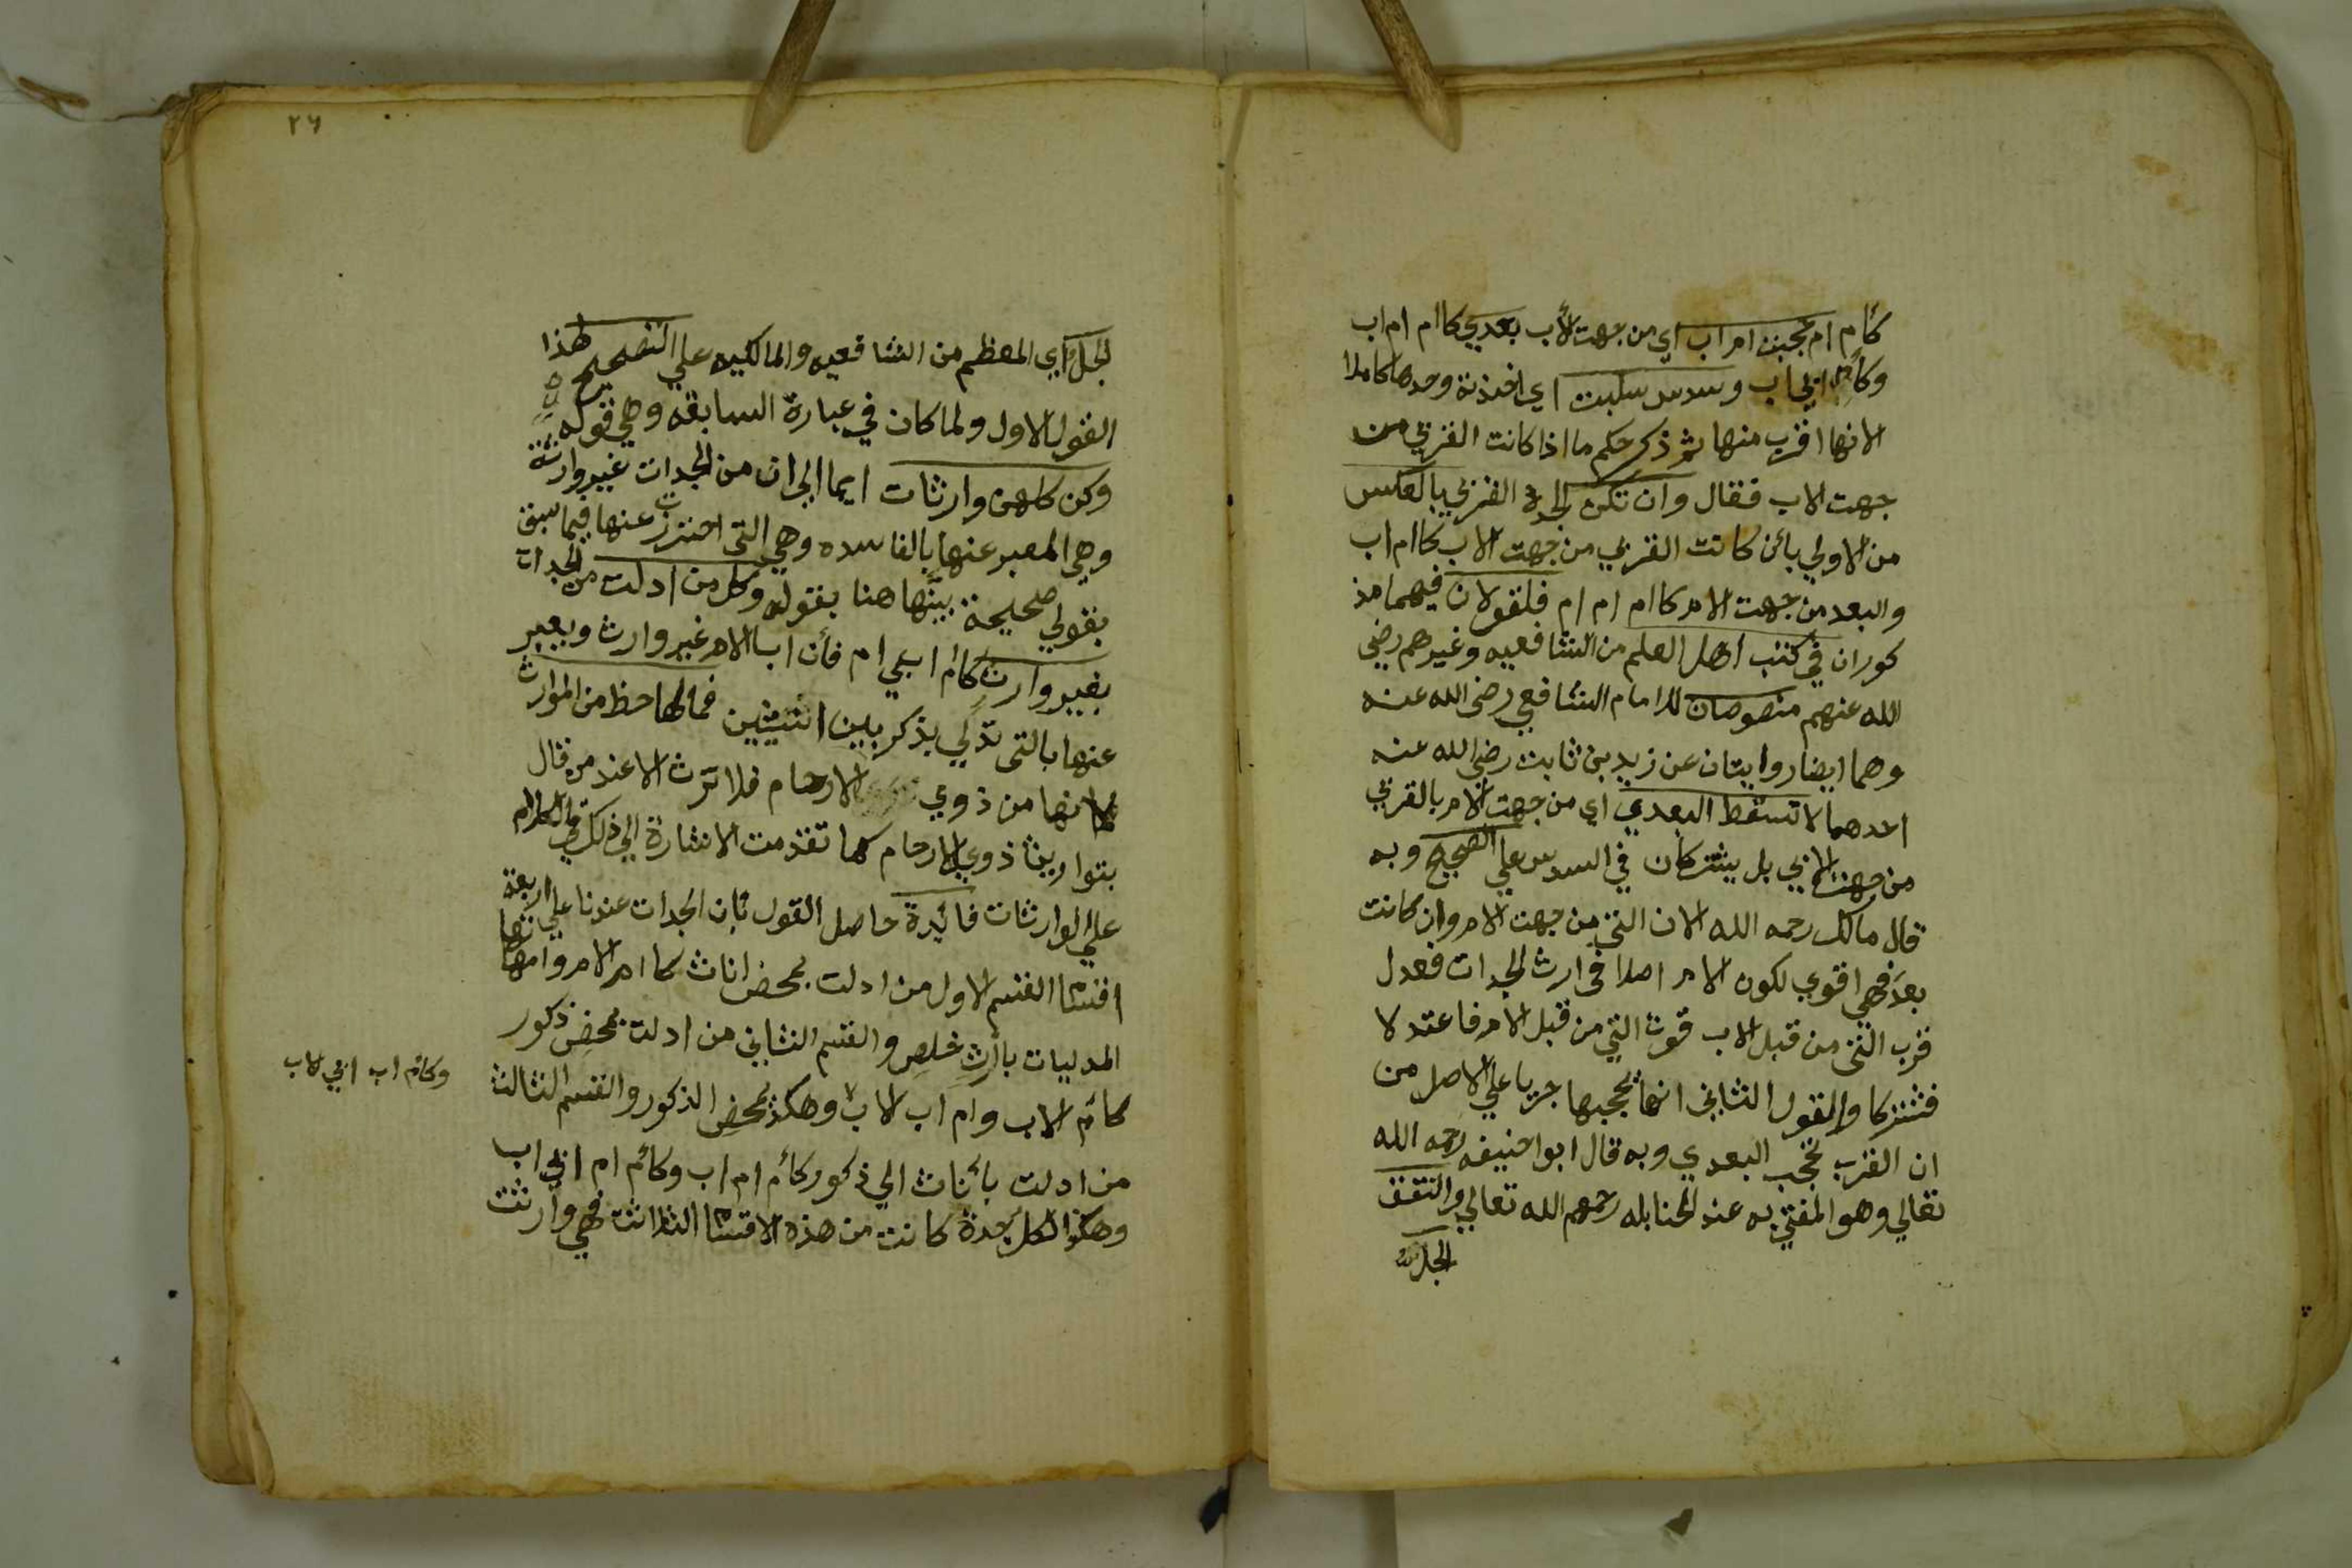 كأم ام حجبت ام اب اي من جهت الأب بعدي كاام ام اب
وكأم ابي اب وسدس سلبت اي اخذته وحدها كاملا
لانها اقرب منها ثم ذكر حكم ما اذا كانت القربي من
جهت الاب فقال وان تكن الجدة القربي بالعكس
من الاولي بأن كانت القربي من جهت الاب كاام اب
والبعد من جهت الام كاام ام ام فلقولان فيهما مذ
كوران في كتب اهل العلم من الشافعيه وغيرهم رضي
الله عنهم منصوصان للامام الشافعي رضي الله عنه
وهما ايضا روايتان عن زيد بن ثابت رضي الله عنه
احدهما لا تسقط البعدي اي من جهت الام بالقربي
من جهت الابي بل يشتركان في السدس علي الصحيح وبه
قال مالك رحمه الله لان التي من جهت الام وان كانت
بعد فهي اقوي لكون الام اصلا في ارث الجدات فعدل
قرب التي من قبل الاب قوت التي من قبل الام فاعتدلا
فشتركا والقول الثاني انها تحجبها جريا علي الاصل من
ان القرب تحجب البعدي وبه قال ابوا حنيفه رحمه الله
تعالي وهو المفتي به عند الحنابله رحمهم الله تعالي واتفق
الجل
٢٦
الجل اي المعظم من الشافعيه والمالكيه علي التصحيح لهذا
القول الاول ولما كان في عبارة السابقه وهي قوله
وكن كلهن وارثات ايما الي ان من الجدات غير وارثة
وهي المعبر عنها بالفاسده وهي التي احترزت عنها فيما سبق
بقولي صحيحة بينها هنا بقوله وكل من ادلت من الجدات
بغير وارث كأم ابي ام فأن اب الام غير وارث ويعبر
عنها بالتي تدلي بذكر بين انثيين فمالها حظ من الموارث
لانها من ذوي الارحام فلا ترث الا عند من قال
بتواريث ذوي الارحام كما تقدمت الاشارة الي ذلك في الكلام
علي الوارثات فائدة حاصل القول بأن الجدات عندنا علي اربعة
اقسام القسم الاول من ادلت بمحض اناث كاام الام وامهاتها
المدليات بأرث خلص والقسم الثاني من ادلت بمحض ذكور
كأم الاب وام اب الاب وهكذ بمحض الذكور والقسم الثالث
وكأم اب ابي لاب
من ادلت بأناث الي ذكور كأم ام اب وكأم ام ابي اب
وهكذا لكل جدة كانت من هذه الاقسام الثلاثت فهي وارثت